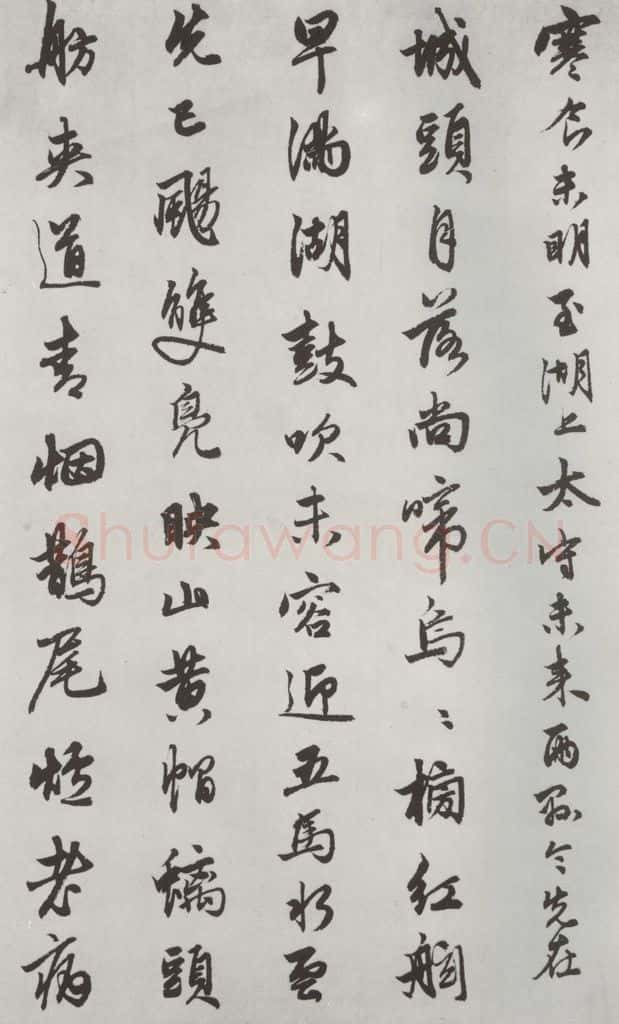 寒食未明至湖上太守未来两县令先在
城頭月落尚啼烏〻榜紅舸
早满湖鼓吹未容迎五馬水雲
先已颺雙鳧映山黄帽螭頭
舫夹道青烟鵲尾炉老病
Shufawang.CN